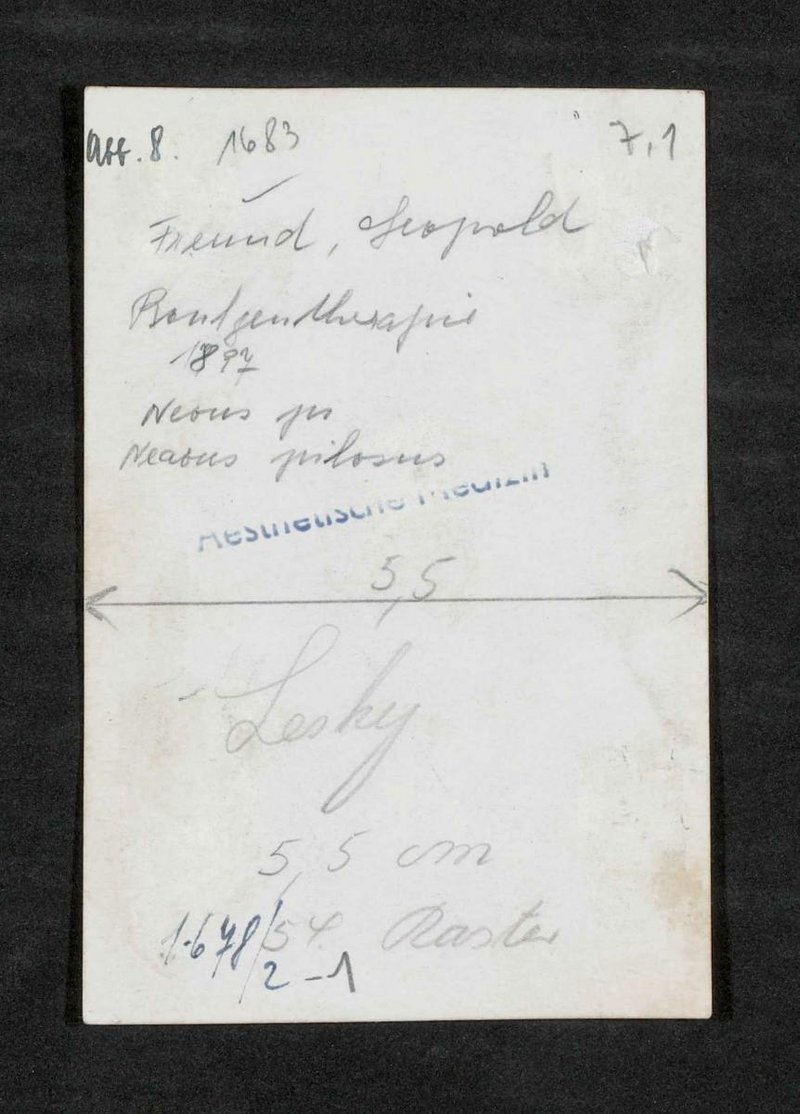 Abb. 8. 1683 7,1
Freund, Leopold
Röntgentherapie
1897
Neous pi
Neaous pilosus
Aesthetische Medizin
5,5
Lesky
5,5 cm
54. Raster
1.678/2-1